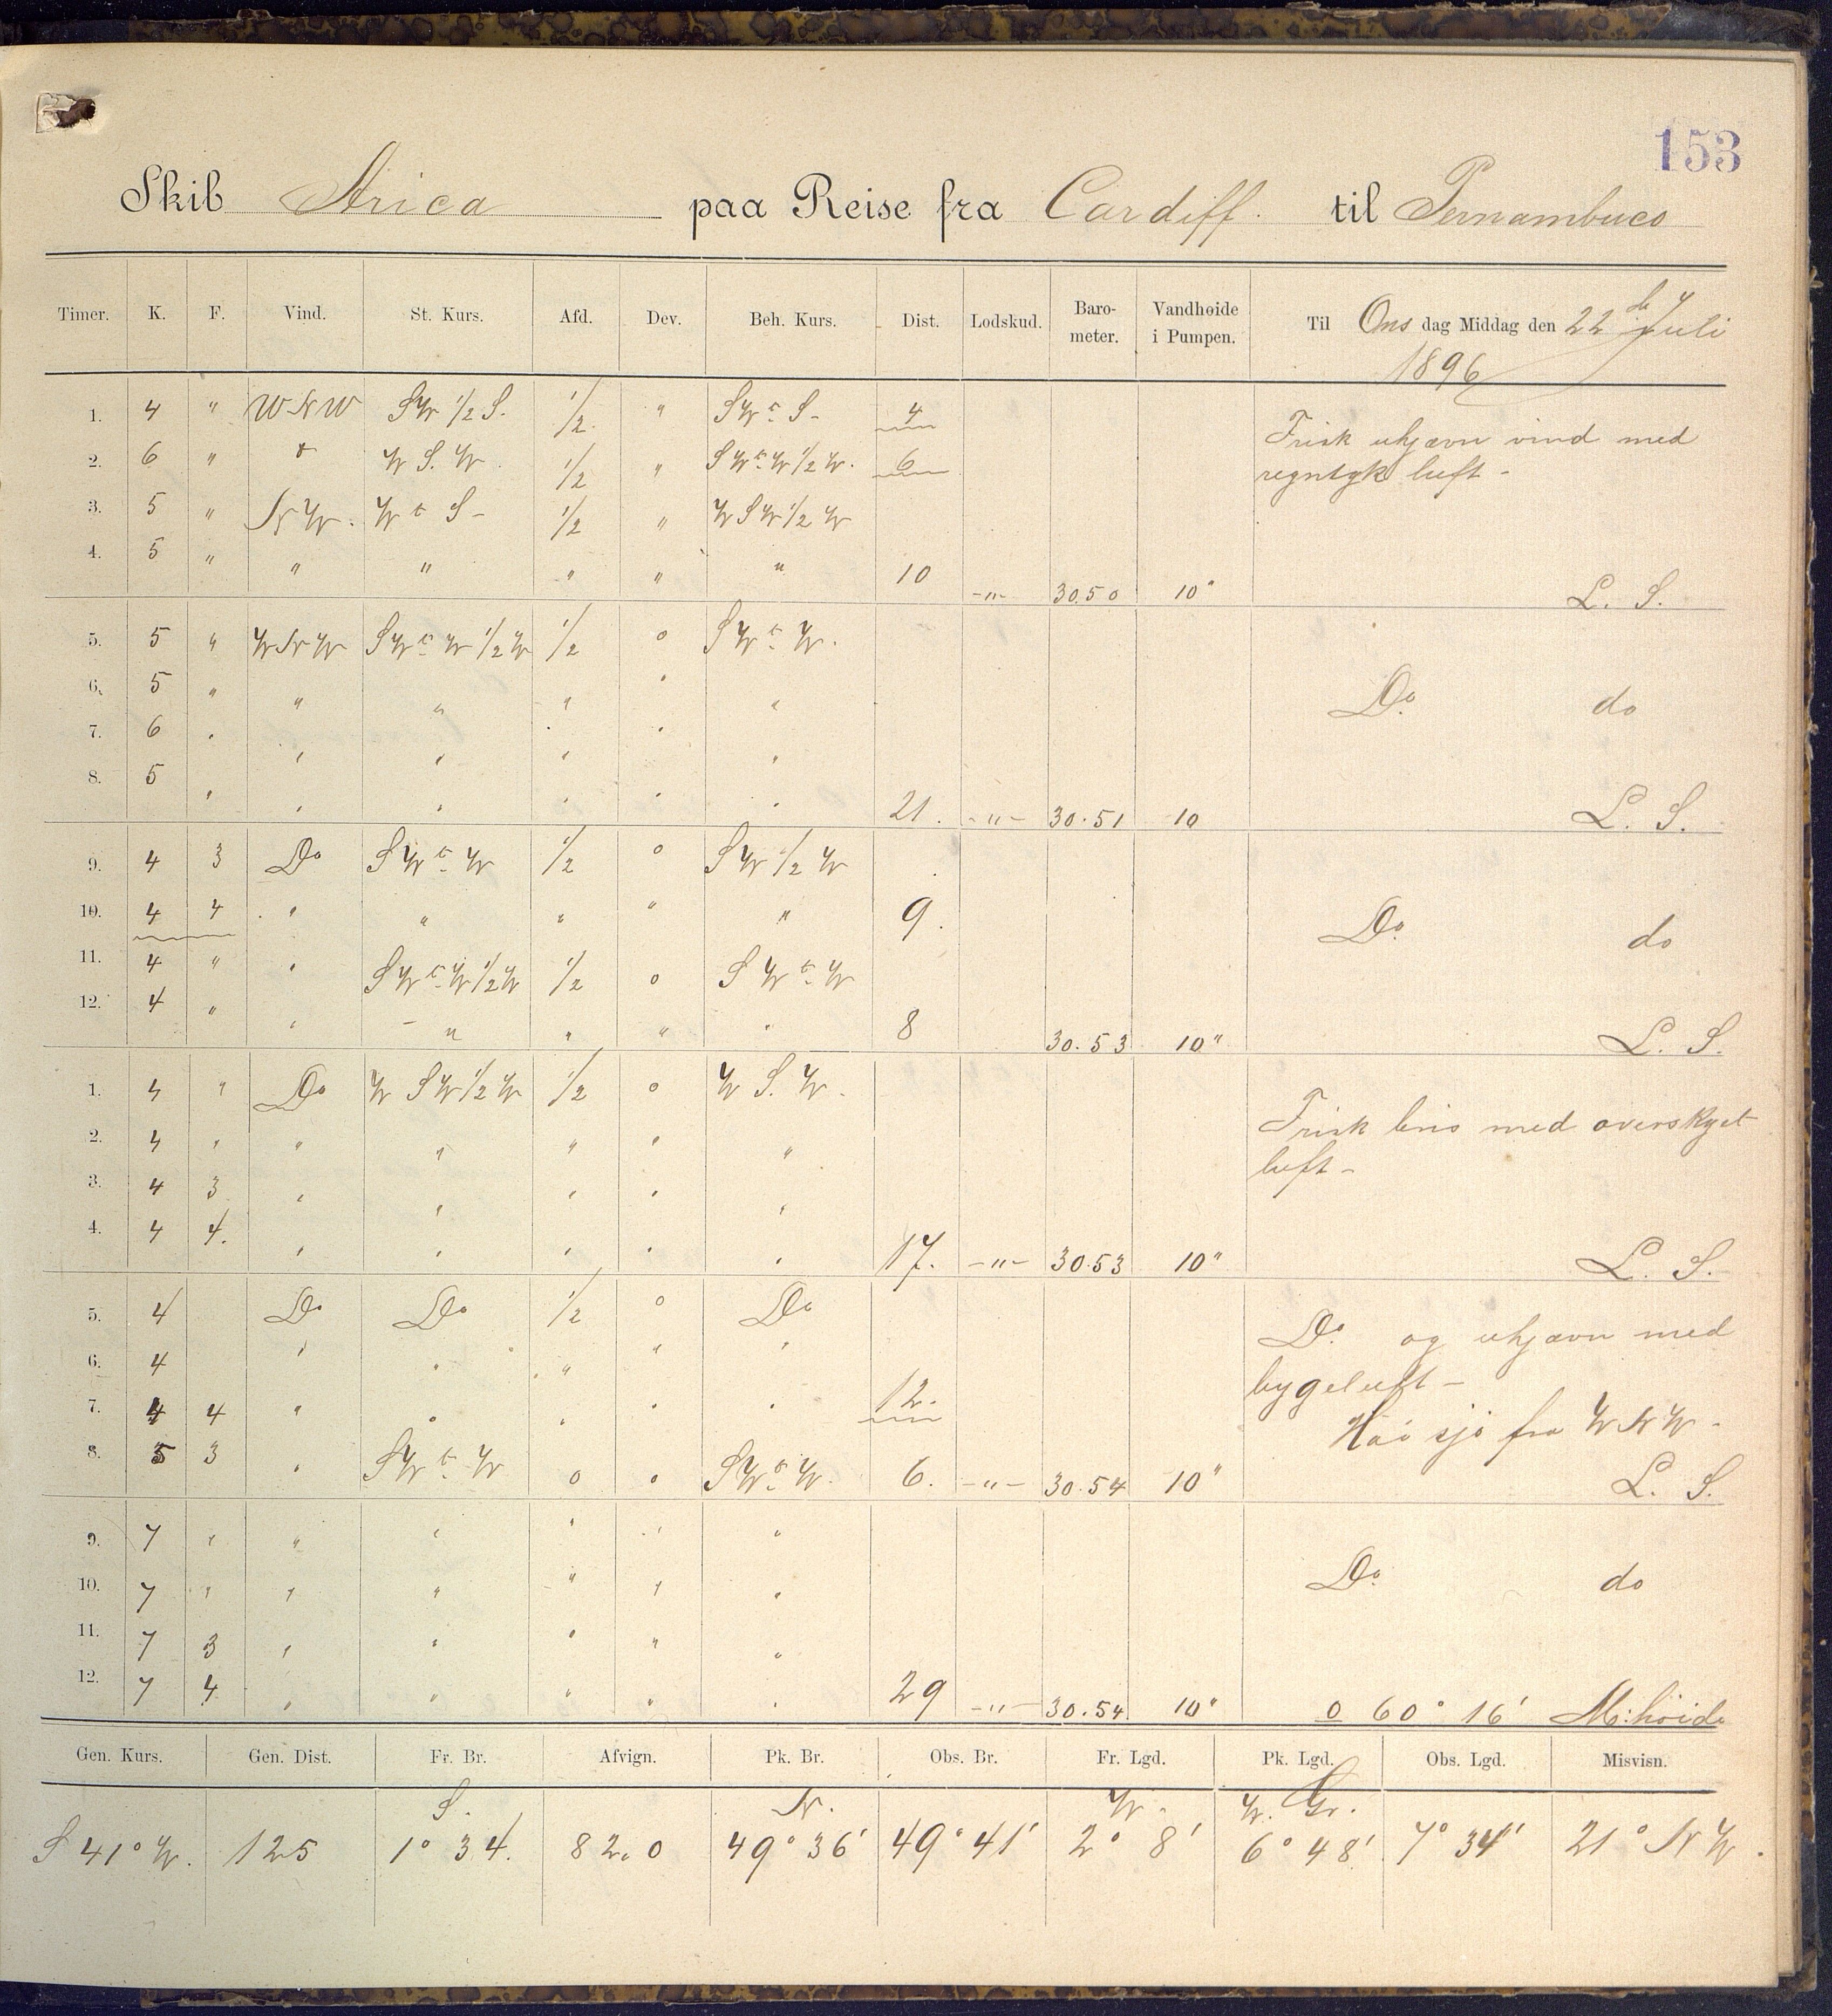 153
Skib Arica paa Reise fra Cardiff. til Pernambuco
Timer. K. F. Vind. St. Kurs. Afd. Dev. Beh. Kurs. Dist. Lodskud. Baro-meter. Vandhøide i Pumpen. Til Onsdag Middag den 22de Juli
1896
1. 4 " WNW SW 1/2 S. 1/2 " SWtS- 4 Frisk ujævn vind med
2. 6 " " WS.W. 1/2 " SWtW1/2W. 6 regntyk luft -
3. 5 " NW. WtS- 1/2 " WSW1/2W
4. 5 " " " " " " 10 -"- 30.50 10" L. S.
5. 5 " WNW SWtW1/2W 1/2 0 SWtW.
6. 5 " " " " " " Do. do
7. 6 " " " " " "
8. 5 " " " " " " 21. -"- 30.51 10 L. S.
9. 4 3 Do SWtW 1/2 0 SW1/2W
10. 4 4 " " " " " 9. Do. do
11. 4 " " SWtW1/2W 1/2 0 SWtW
12. 4 " " " " " " 8 30.53 10" L. S.
1. 4 " Do WSW1/2W 1/2 0 WS.W. Frisk bris med overskyet
2. 4 " " " " " " luft -
3. 4 3 " " " " "
4. 4 4. " " " " " 17. -"- 30.53 10" L. S.
5. 4 Do Do 1/2 0 Do Do. og ujævn med
6. 4 " " " " " bygeluft -
7. 4 4 " " " " " 12. Høi sjø fra WNW -
8. 5 3 " SWtW 0 0 SWtW. 6. -"- 30.54 10" L. S.
9. 7 " " " " " "
10. 7 " " " " " " Do. do
11. 7 3 " " " " "
12. 7 4 " " " " " 29 -"- 30.54. 10" 0 60° 16' M:høide
Gen. Kurs. Gen. Dist. Fr. Br. Afvign. Pk. Br. Obs. Br. Fr. Lgd. Pk. Lgd. Obs. Lgd. Misvisn.
S. N. W. W. Gr.
S 41° W. 125 1° 34. 82.0 49° 36' 49° 41' 2° 8' 6° 48' 7° 34' 21° NW.